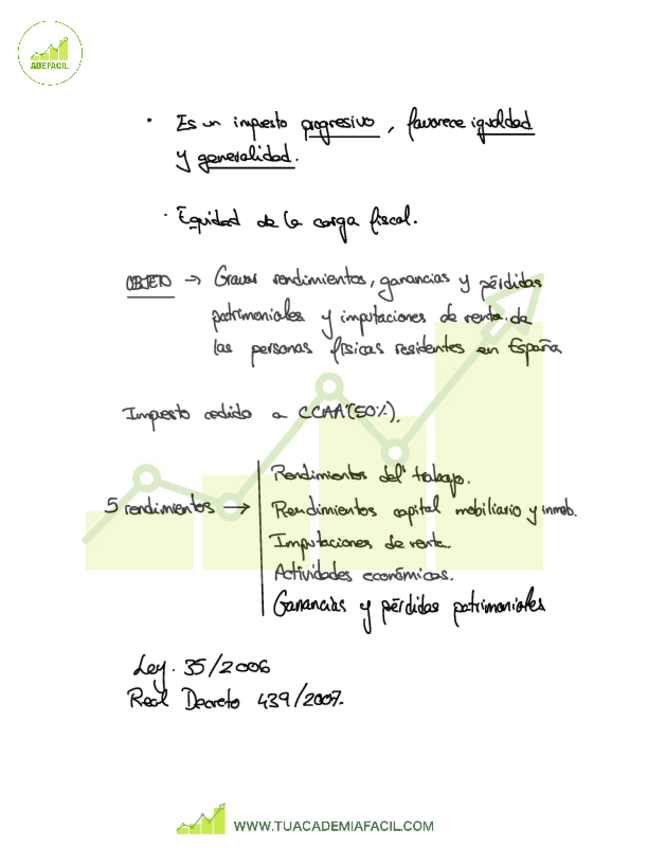 ADEFACIL
· Es un impuesto progresivo, favorece igualdad
y generalidad.
· Equidad de la carga fiscal.
OBJETO → Gravar rendimientos, ganancias y pérdidas
patrimoniales y imputaciones de renta de
las personas físicas residentes en España
Impuesto cedido a CCAA (50%).
Rendimientos del trabajo.
5 rendimientos → Rendimientos capital mobiliario y inmob.
Imputaciones de renta.
Actividades económicas.
Ganancias y pérdidas patrimoniales
Ley. 35/2006
Real Decreto 439/2007.
WWW.TUACADEMIAFACIL.COM